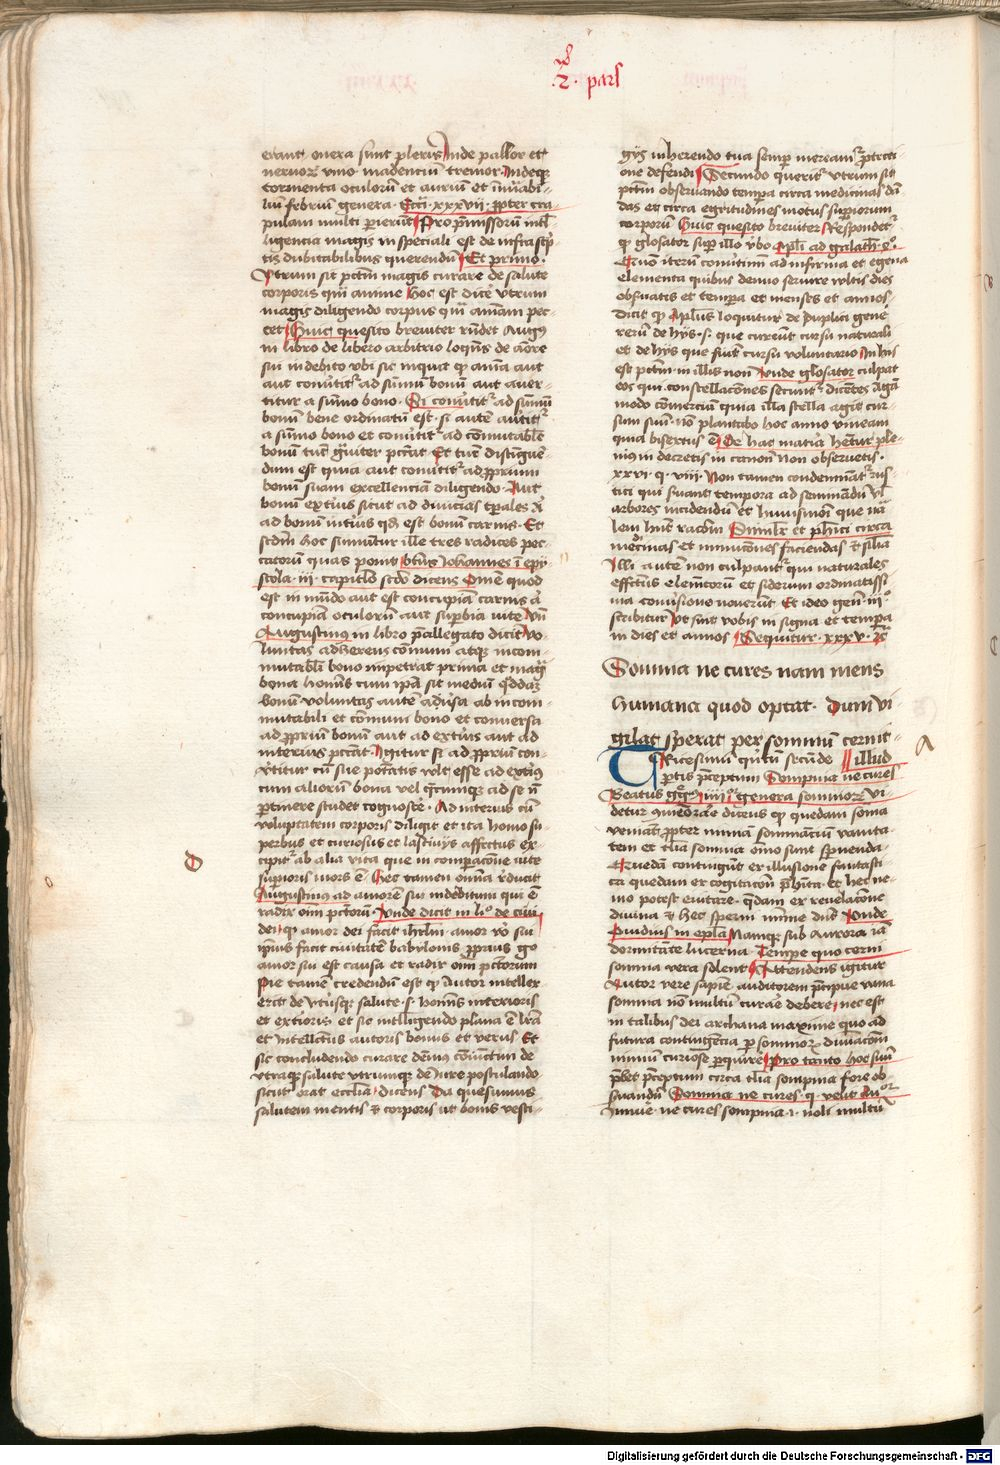 .2. pars
erant onera sunt pleris Inde pallor et
neruorum vino madencium tremor Indeque
tormenta oculorum et aurium et innuabi
lium febrium genera Ecci xxxvii propter cra
pulam multi perierunt Pro premissorum intel
ligencia magis in speciali est de infrascrip
tis dubitabilibus querendum Et primo
Vtrum sit peccatum magis curare de salute
corporis quam anime hoc est dicere vtrum
magis diligendo corpus quam animam pec
cet Huic quesito breuiter respondet Augus
in libro de libero arbitrio loquens de amore
sui indebito vbi sic inquit quod anima aut
aut conuertitur ad summum bonum aut auer
titur a summo bono Si conuertitur ad summum
bonum bene ordinatum est si autem auertitur
a summo bono et conuertitur ad commutabile
bonum tunc grauiter peccat Et tunc distinguen
dum est quia aut conuertitur ad proprium
bonum suam excellenciam diligendo Aut
bonum exterius sicut ad diuicias temporales aut
ad bonum interius quod est bonum carnis Et
secundum hoc sumuntur ille tres radices pec
catorum quas ponit beatus Iohannes in epi
stola iii capitulo secundo dicens Omne quod
est in mundo aut est concupiscencia carnis aut
concupiscencia oculorum aut superbia vite Vnde
Augustinus in libro preallegato dicit Vo
luntas adherens communi atque incom
mutabili bono impetrat prima et magna
bona hominis cum ipsa sit medium quoddam
bonum voluntas autem aduersa ab incom
mutabili et communi bono et conuersa
ad proprium bonum aut ad exterius aut ad
interius peccat Igitur si ad proprium con
uertitur cum sue potestatis vult esse ad exterius
cum aliorum bona vel quecumque ad se non
pertinere studet cognoscere Ad interius cum
voluptatem corporis diligit et ita homo su
perbus et curiosus et lasciuus affectus ex
cipitur ab alia vita que in comparacione vite
superioris mors est Hec tamen omnia reducit
Augustinus ad amorem sui indebitum qui est
radix omnium peccatorum Vnde dicit in libro de ciui
dei quod amor dei facit iherusalem amor vero sui
ipsius facit ciuitatem babilonis proprius ergo
amor sui est causa et radix omnium peccatorum
Pie tamen credendum est quod Autor intellex
erit de vtriusque salute s. hominis interioris
et exterioris et sic intelligendo plana est littera
et intellectus autoris bonus et verus Et
sic concludendo curare demus coniunctim de
vtraque salute vtriumque de iure postulando
sicut orat ecclesia dicens Da quesumus
salutem mentis et corporis ut bonis vesti
giis inherendo tua semper mereamur protecti
one defendi Secundo queritur vtrum sit
peccatum obseruando tempora circa medicinas dan
das et circa egritudines motus superiorum
corporum Huic quesito breuiter Respondetur
quod glosator super illo verbo Apostoli ad galath 4o
Quomodo iterum conuertimini ad infirma et egena
elementa quibus denuo seruire vultis dies
obseruatis et tempora et menses et annos
Dicit quod Apostolus loquitur de duplici gene
rerum de hiis s. que currunt cursu naturali
et de hiis que fiunt cursu voluntario In hiis
est peccatum in illis non Vnde glosator culpat
eos qui constellaciones secuntur dicentes Agam
modo comercium quia illa stella agit cur
sum suum non plantabo hoc anno vineam
quia bisextus est De hac materia habetur ple
nius in decretis in canone Non obseruetis
xxvi q viii Non tamen condemnantur rus
tici qui seruant tempora ad seminandum vel
arbores incidendum et huiusmodi que natura
lem habent racionem Similiter et phisici circa
medicinas et minuciones faciendas et similia
Illi autem non culpantur qui naturales
effectus elementorum et siderum ordinatissi
ma conuersione nouerunt Et ideo gen iio
scribitur Vt sint vobis in signa et tempora
in dies et annos Sequitur xxxv etc
Sompnia ne cures nam mens
humana quod optat Dum vi
gilat sperat per somnum cernit
TRicesimum quintum secunde illud
partis preceptum Sompnia ne cures
Beatus Greg iiiior genera somniorum vi
detur ennumerare dicens quod quedam somnia
veniunt propter nimiam somniancium vanita
tem et talia somnia omnino sunt spernenda
Quedam contingunt ex illusione fantasti
ca quedam ex cogitacione prehabita et hec ne
mo potest euitare quedam ex reuelacione
diuina et hec sperni minime debent Vnde
Ouidius in epistola Namque sub Aurora iam
dormitante lucerna Tempore quo cerni
somnia vera solent Attendens igitur
Autor vere sapiens auditorem precipue vana
somnia non multum curare debere nec est
in talibus dei archana maxime quo ad
futura contingencia per somniorum diuinacionem
nimium curiose perquirere Pro tanto hoc suum
prebet preceptum circa talia sompnia fore ob
seruandum Somnia ne cures q. velit Autor
innuere ne cures sompnia i. noli multum
D
A
Digitalisierung gefördert durch die Deutsche Forschungsgemeinschaft - DFG